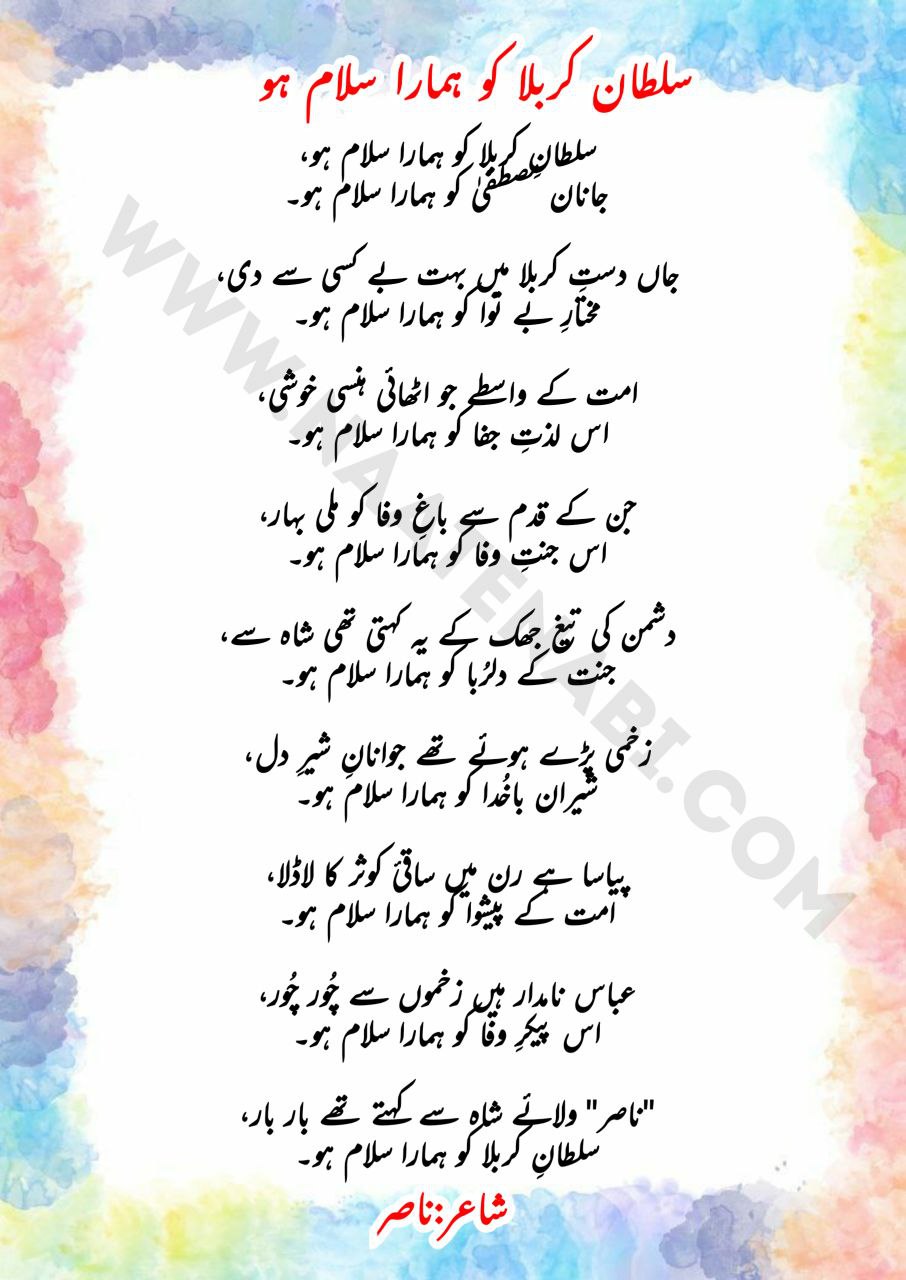 سلطان کربلا کو ہمارا سلام ہو
سلطانِ کربلا کو ہمارا سلام ہو،
جانان مصطفیٰ کو ہمارا سلام ہو۔
جاں دستِ کربلا میں بہت بے کسی سے دی،
مختارِ بے نوا کو ہمارا سلام ہو۔
امت کے واسطے جو اٹھائی ہنسی خوشی،
اس لذتِ جفا کو ہمارا سلام ہو۔
جن کے قدم سے باغِ وفا کو ملی بہار،
اس جنتِ وفا کو ہمارا سلام ہو۔
دشمن کی تیغ جھک کے یہ کہتی تھی شاہ سے،
جنت کے دلرُبا کو ہمارا سلام ہو۔
زخمی پڑے ہوئے تھے جوانانِ شیرِ دل،
شیران باخُدا کو ہمارا سلام ہو۔
پیاسا ہے رن میں ساقئ کوثر کا لاڈلا،
امت کے پیشوا کو ہمارا سلام ہو۔
عباس نامدار ہیں زخموں سے چُور چُور،
اس پیکرِ وفا کو ہمارا سلام ہو۔
"ناصر" ولائے شاہ سے کہتے تھے بار بار،
سلطانِ کربلا کو ہمارا سلام ہو۔
شاعر:ناصر
WWW.NAATENABI.COM